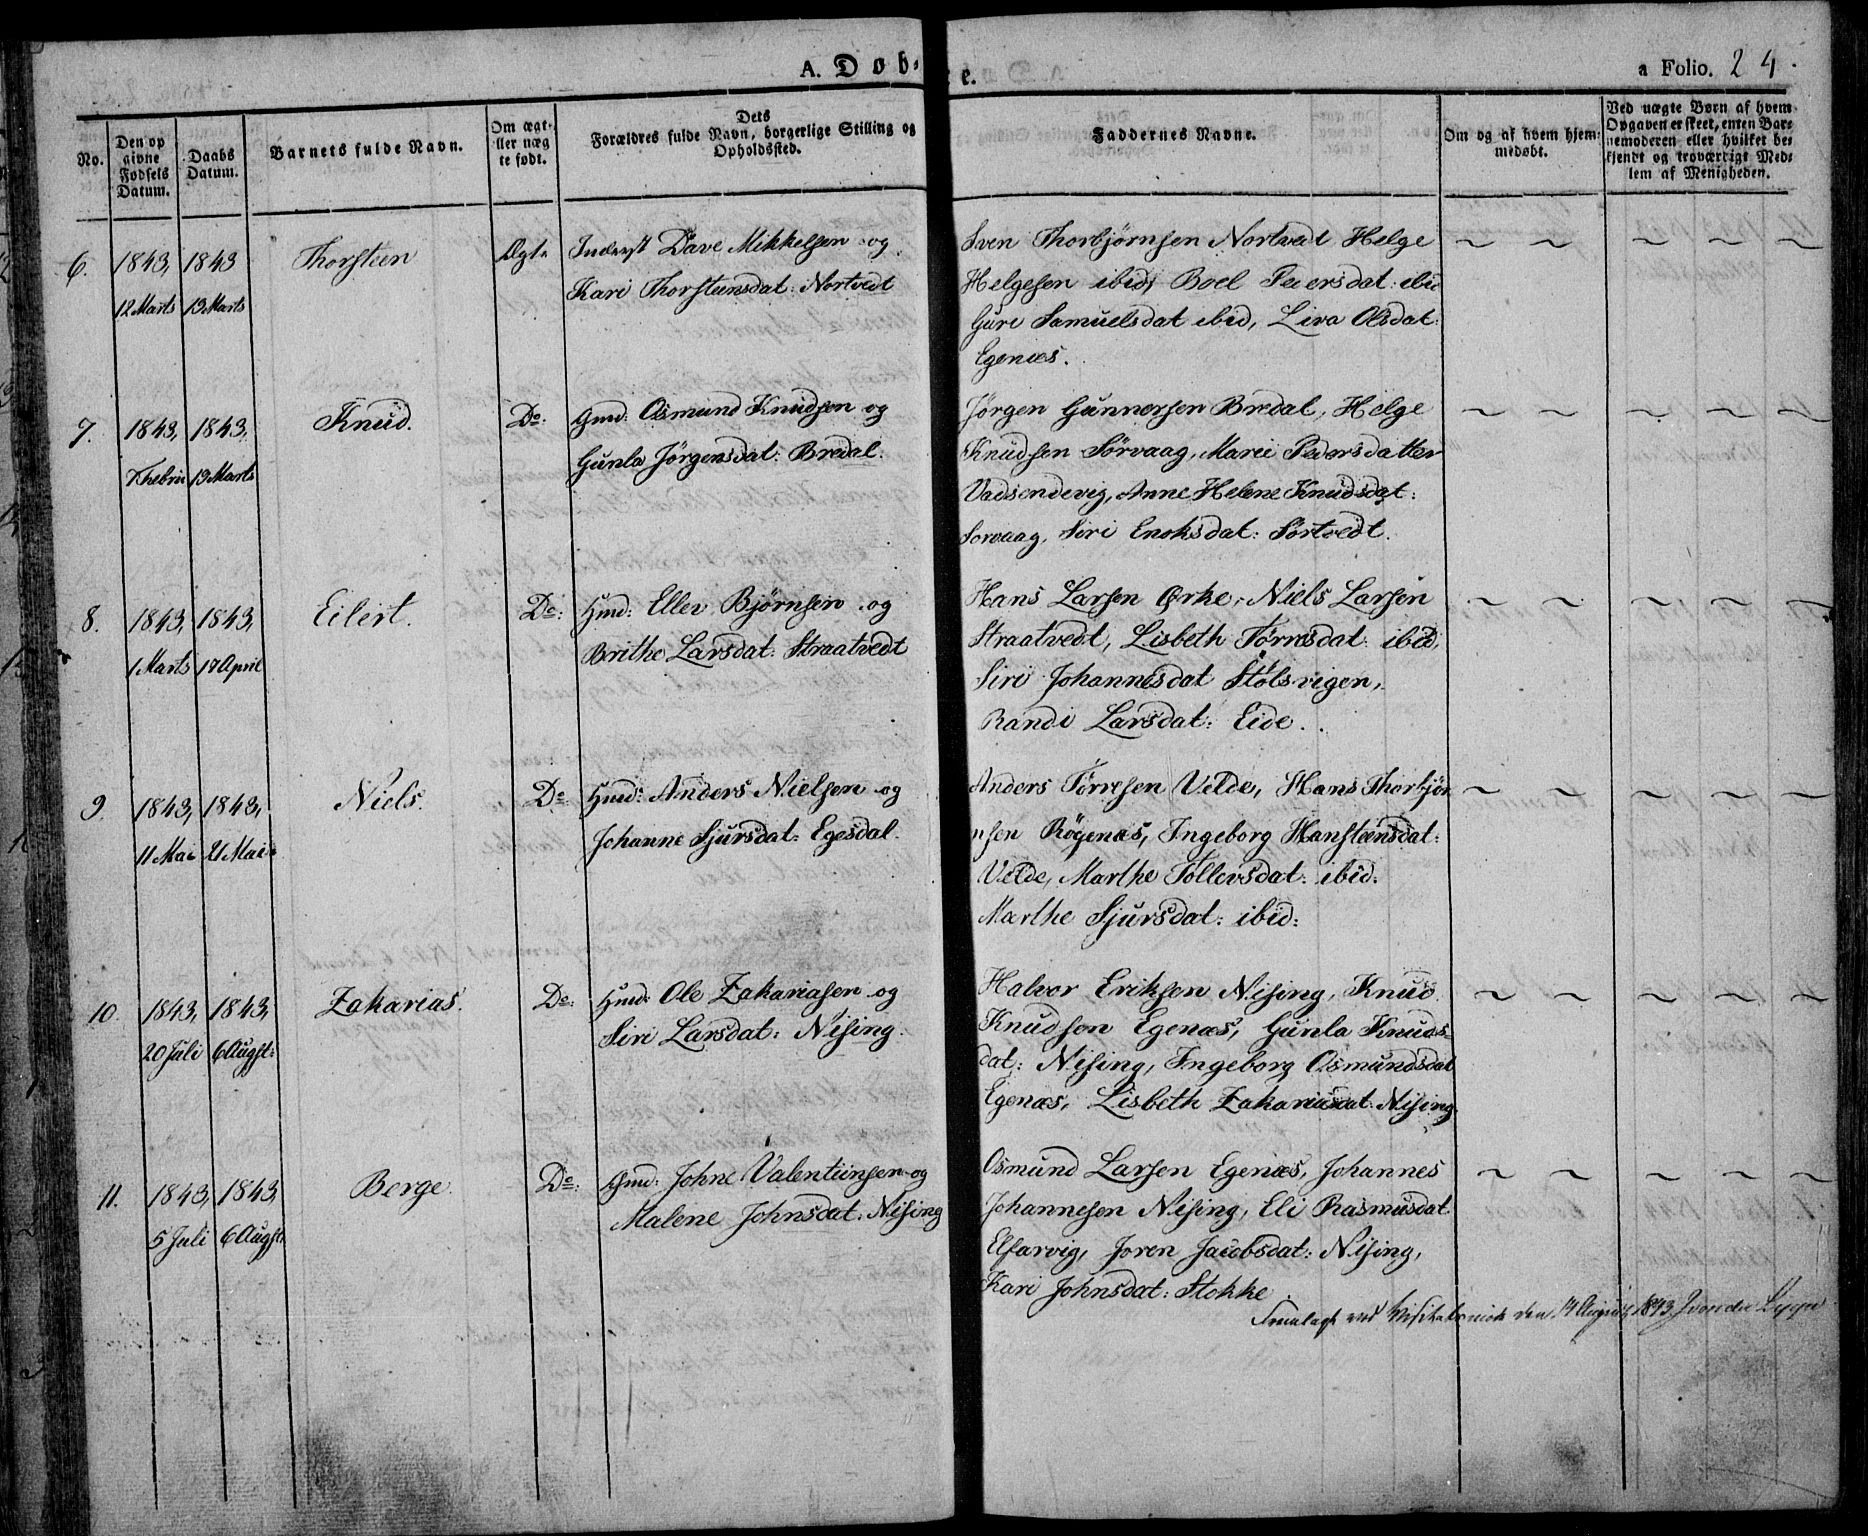 A. Døb-
e.
a Folio. 24.
No.
Den op
givne
Fødsels
Datum.
Daabs
Datum.
Barnets fulde Navn.
Om ægt-
eller næg
te født.
Dets
Forældres fulde Navn, borgerlige Stilling og
Opholdssted.
Faddernes Navne.
Om og af hvem hjem-
medøbt.
Ved uægte Børn af hvem
Opgaven er skeet, enten Bar-
nemoderen eller hvilket be-
kjendt og troværdigt Med-
lem af Menigheden.
6. 1843, 1843 Thorsteen Ægte Inderst Dave Mikkelsen og
12 Marts 13 Marts Kari Thorsteensdat: Nortvedt
Sven Thorbjørnsen Nortvedt Helge
Helgesen ibid, Boel Pedersdat: ibid
Guri Samuelsdat ibid, Liva Olsdat:
Egenæs.
7. 1843, 1843, Knud. Do: Gmd: Osmund Knudsen og
7 Febru 13 Marts Gunla Jørgensdat: Bredal.
Jørgen Gunnersen Bredal, Helge
Knudsen Sørvaag, Marie Pedersdatter
Vadsendevig, Anne Helene Knudsdat:
Sorvaag, Siri Enoksdat: Sørtvedt.
8. 1843, 1843, Eilert. Do: Hmd: Ellev Bjørnsen og
1 Marts 17 April Brithe Larsdat: Straatvedt
Hans Larsen Ørke, Niels Larsen
Straatvedt, Lisbeth Tørresdat: ibid,
Siri Johannesdat Stølsvigen,
Randi Larsdat: Eide.
9. 1843, 1843, Niels. Do: Hmd: Anders Nielsen og
11 Mai 21 Mai Johanne Sjursdat: Egesdal.
Anders Tørresen Velde, Hans Thorbjør
nsen Røgenæs, Ingeborg Hansteensdat:
Velde, Marthe Tollevsdat: ibid.
Marthe Sjursdat: ibid:
10. 1843, 1843, Zakarias. Do: Hmd: Ole Zakariasen og
20 Juli 6 Augst: Siri Larsdat: Nising.
Halvor Eriksen Nising, Knud
Knudsen Egenæs, Gunla Knuds-
dat: Nising, Ingeborg Osmundsdat
Egenæs, Lisbeth Zakariasdat: Nising
11. 1843, 1843, Berge. Do: Gmd: Johne Valentinsen og
5 Juli 6 Augst: Malene Johnsdat: Nising
Osmund Larsen Egenæs, Johannes
Johannesen Nising, Eli Rasmusdat
Elfarvig, Joren Jacobsdat: Nising,
Kari Johnsdat: Stokke.
Fremlagt ved Visitatsmøde den 14 August 1843 J von der Lippe